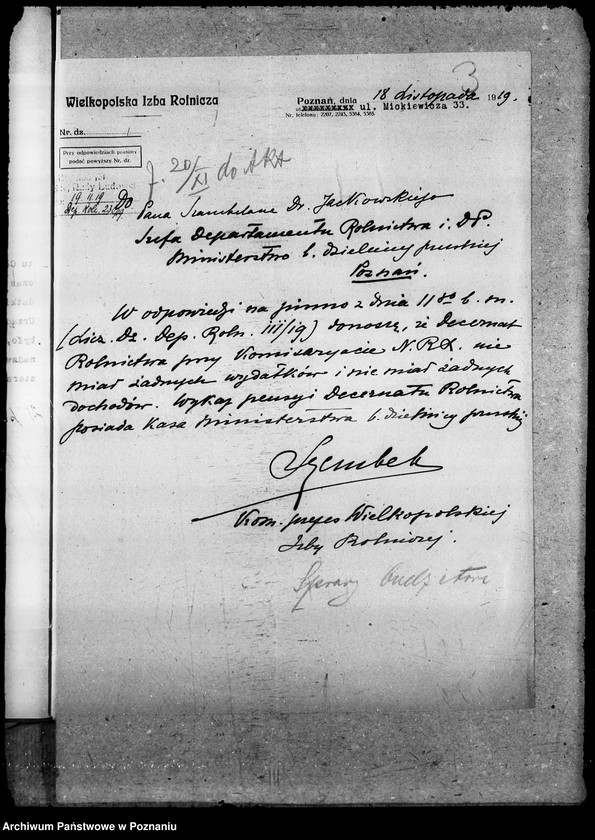 3
Wielkopolska Izba Rolnicza
Poznań, dnia 18 Listopada 1919.
xxxxxxxxx ul. Mickiewicza 33.
Nr. telefonu: 2207, 2243, 3384, 3385.
Nr. dz.
Przy odpowiedziach prosimy
podać powyższy Nr. dz.
20/XI do Akt
19 11 19
Do
Pana Szambelana Dr. Jackowskiego
Szefa Departamentu Rolnictwa i D. P.
Ministerstwo b. dzielnicy pruskiej
Poznań.
W odpowiedzi na pismo z dnia 11go b. m.
(Licz. Dz. Dep. Roln. III/19) donoszę, że Decernat
Rolnictwa przy Komisaryacie N.R.L. nie
miał żadnych wydatków i nie miał żadnych
dochodów. Wykaz pensyi Decernatu Rolnictwa
posiada Kasa Ministerstwa b. dzielnicy pruskiej
Szembek
Kom. prezes Wielkopolskiej
Izby Rolniczej.
Sprawy budżetowe
Archiwum Państwowe w Poznaniu